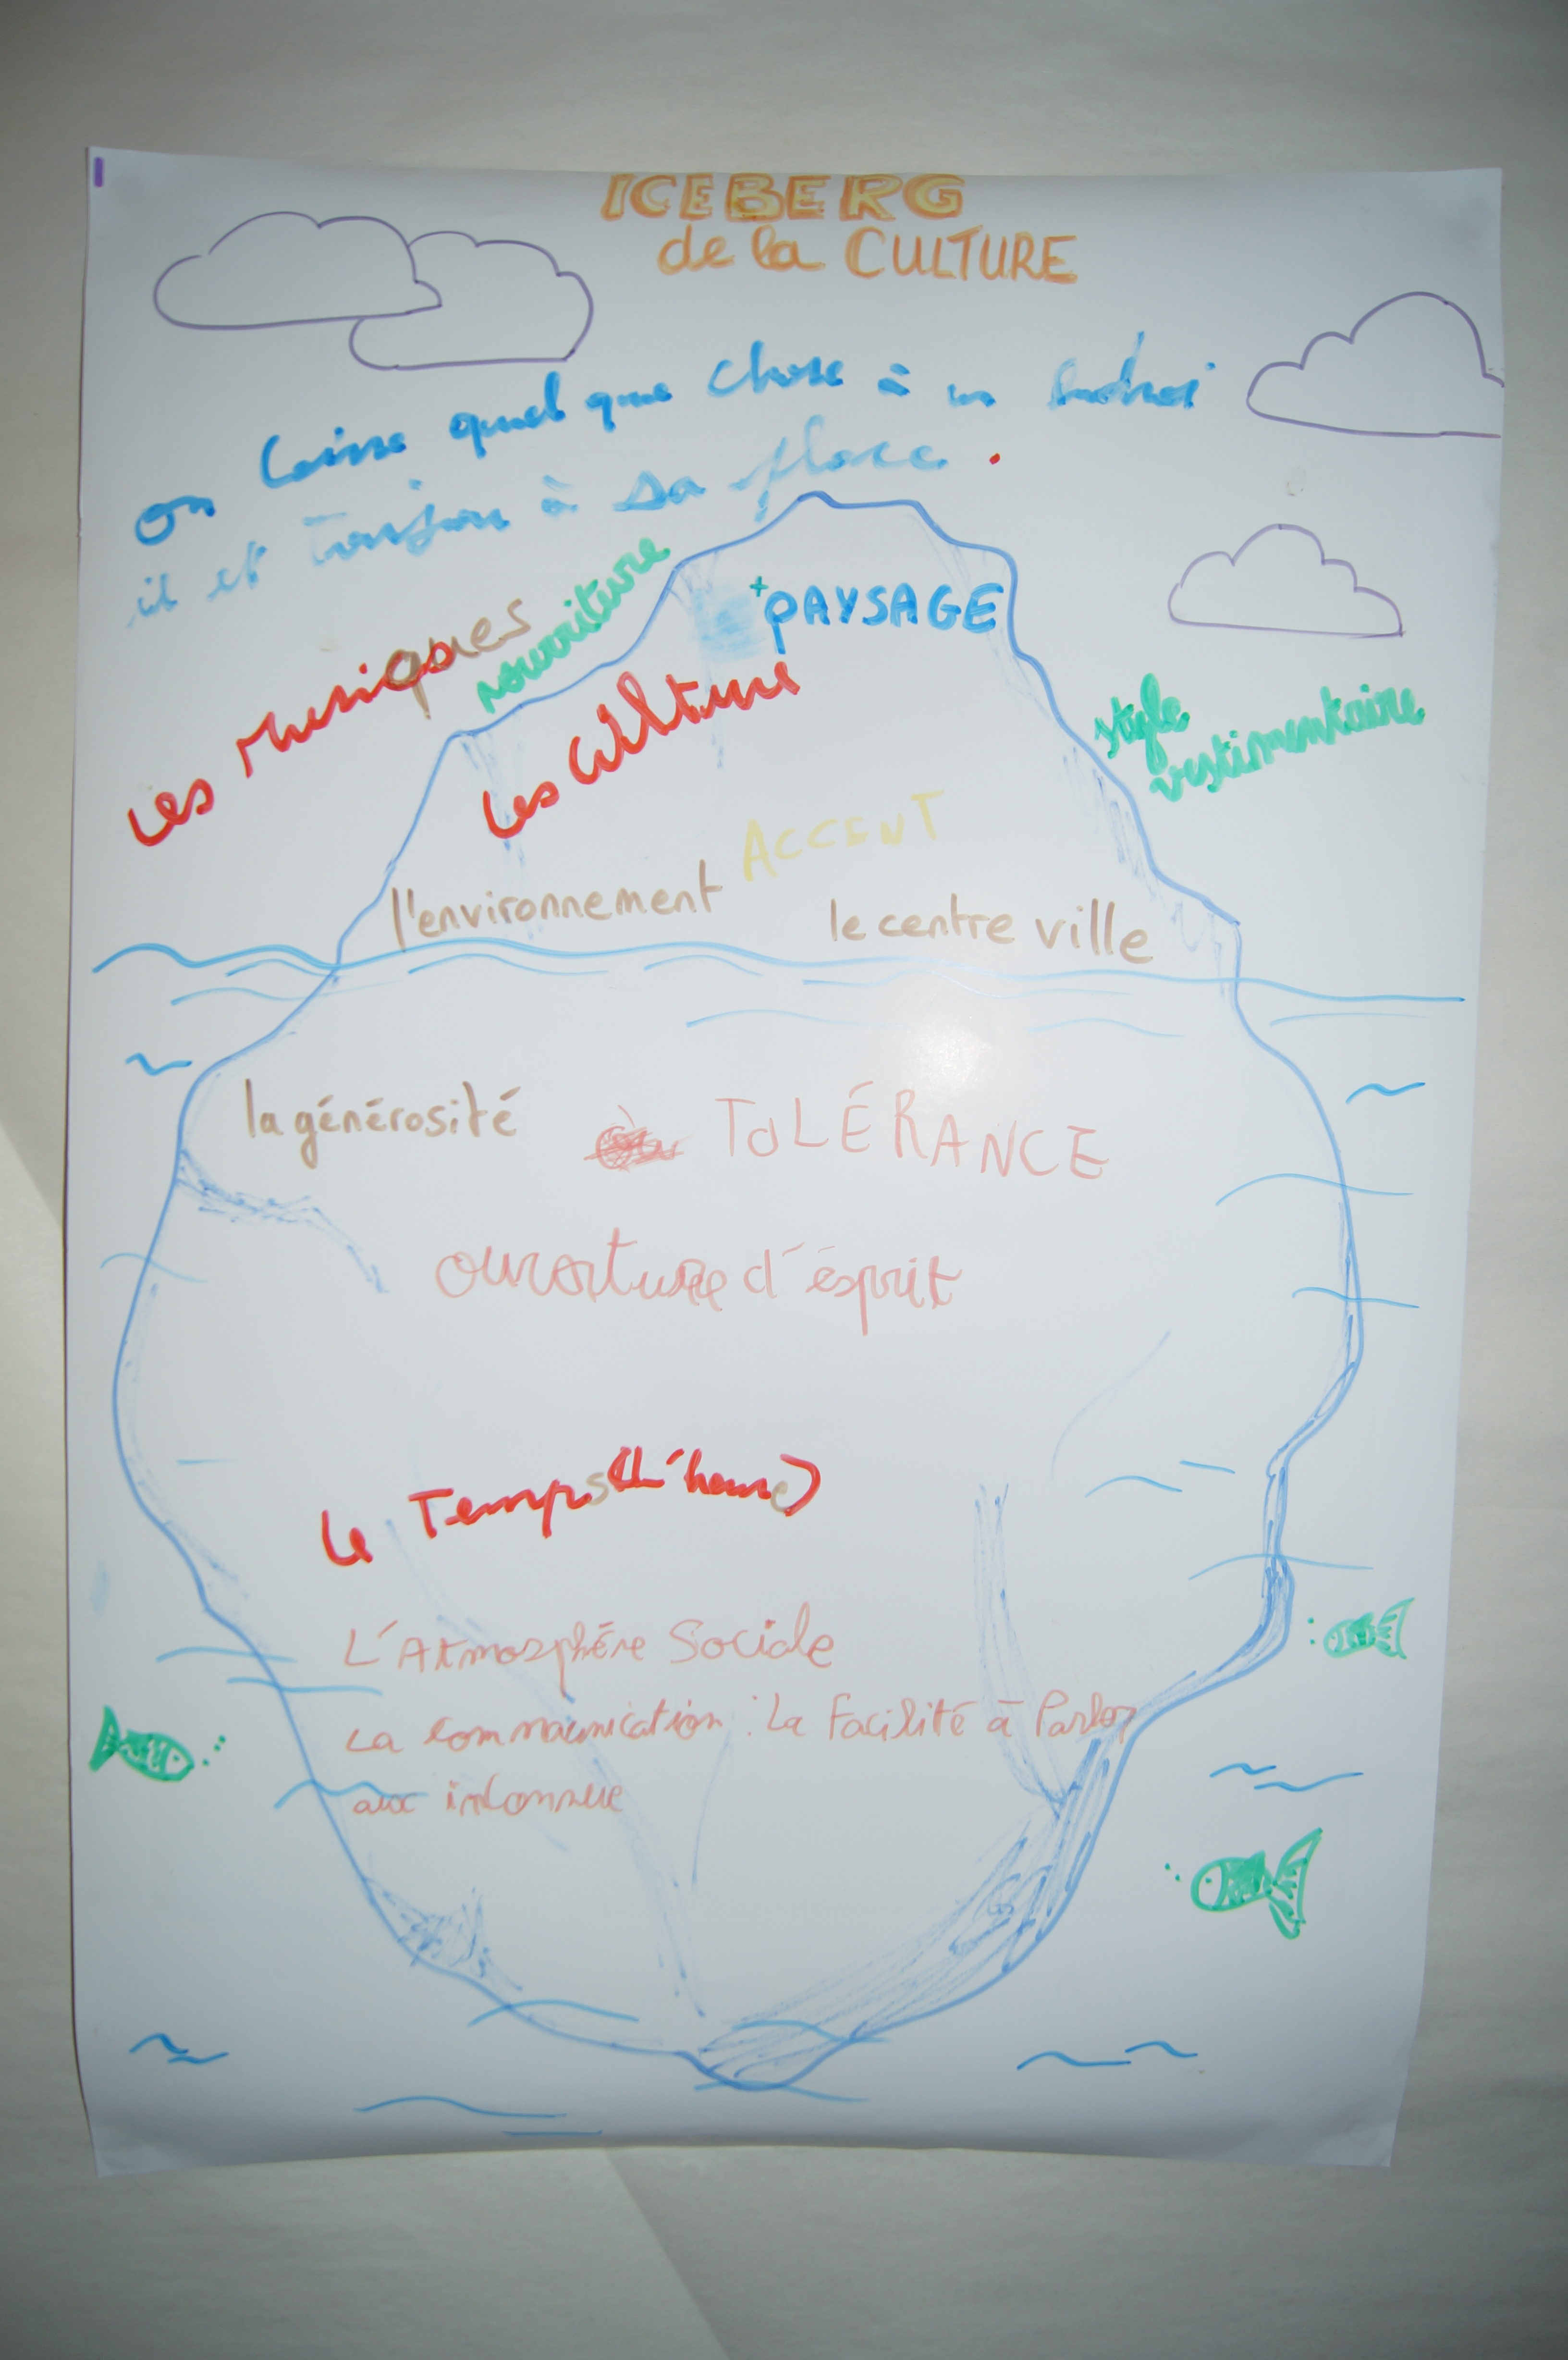 ICEBERG
de la CULTURE
on laisse quel que chose à un
il et à sa place.
Les musiques
nourriture
+ PAYSAGE
Les Culture
style
vestimentaire
ACCENT
l'environnement
le centre ville
la générosité
TOLÉRANCE
ouverture d'ésprit
Le Temps (L'heure)
L'Atmosphére Sociale
La communication : La Facilité à Parler
aux inconnue